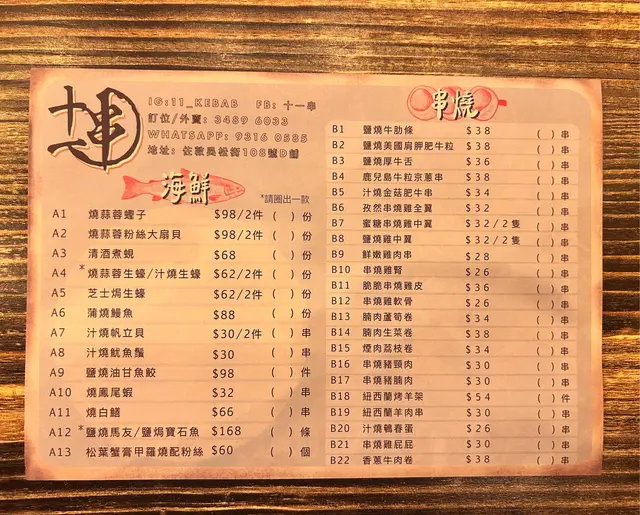 十一串
IG:11_KEBAB FB: 十一串
訂位/外賣: 3489 6033
WHATSAPP: 9316 0585
地址: 佐敦吳松街108號D舖
海鮮
*請圈出一款
A1 燒蒜蓉蟶子 $98/2件 ( ) 份
A2 燒蒜蓉粉絲大扇貝 $98/2件 ( ) 份
A3 清酒煮蜆 $68 ( ) 份
A4 *燒蒜蓉生蠔/汁燒生蠔 $62/2件 ( ) 份
A5 芝士焗生蠔 $62/2件 ( ) 份
A6 蒲燒鰻魚 $88 ( ) 份
A7 汁燒帆立貝 $30/2件 ( ) 串
A8 汁燒魷魚鬚 $30 ( ) 串
A9 鹽燒油甘魚鮫 $98 ( ) 件
A10 燒鳳尾蝦 $32 ( ) 串
A11 燒白鱔 $66 ( ) 串
A12 *鹽燒馬友/鹽焗寶石魚 $168 ( ) 條
A13 松葉蟹膏甲羅燒配粉絲 $60 ( ) 個
串燒
B1 鹽燒牛肋條 $38 ( ) 串
B2 鹽燒美國肩胛肥牛粒 $38 ( ) 串
B3 鹽燒厚牛舌 $36 ( ) 串
B4 鹿兒島牛粒京蔥串 $38 ( ) 串
B5 汁燒金菇肥牛串 $34 ( ) 串
B6 孜然串燒雞全翼 $32 ( ) 串
B7 蜜糖串燒雞中翼 $32/2隻 ( ) 串
B8 鹽燒雞中翼 $32/2隻 ( ) 串
B9 鮮嫩雞肉串 $28 ( ) 串
B10 串燒雞腎 $26 ( ) 串
B11 脆脆串燒雞皮 $36 ( ) 串
B12 串燒雞軟骨 $26 ( ) 串
B13 腩肉蘆筍卷 $34 ( ) 串
B14 腩肉生菜卷 $38 ( ) 串
B15 煙肉荔枝卷 $34 ( ) 串
B16 串燒豬頸肉 $30 ( ) 串
B17 串燒豬腩肉 $30 ( ) 串
B18 紐西蘭烤羊架 $54 ( ) 件
B19 紐西蘭羊肉串 $30 ( ) 串
B20 汁燒鵪春蛋 $26 ( ) 串
B21 串燒雞屁屁 $30 ( ) 串
B22 香蔥牛肉卷 $38 ( ) 串